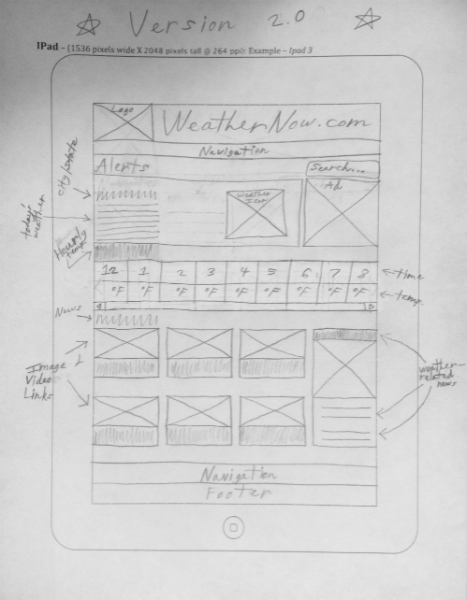 ☆ Version 2.0 ☆
IPad - (1536 pixels wide X 2048 pixels tall @ 264 ppi) Example - Ipad 3
Logo
WeatherNow.com
Navigation
Alerts
Search...
city/state
today's weather
Weather Icon
Ad
Hourly temp.
12 1 2 3 4 5 6 7 8
time
°F °F °F °F °F °F °F °F °F
temp.
News
Image
Video
Links
weather-
related
news
Navigation
Footer